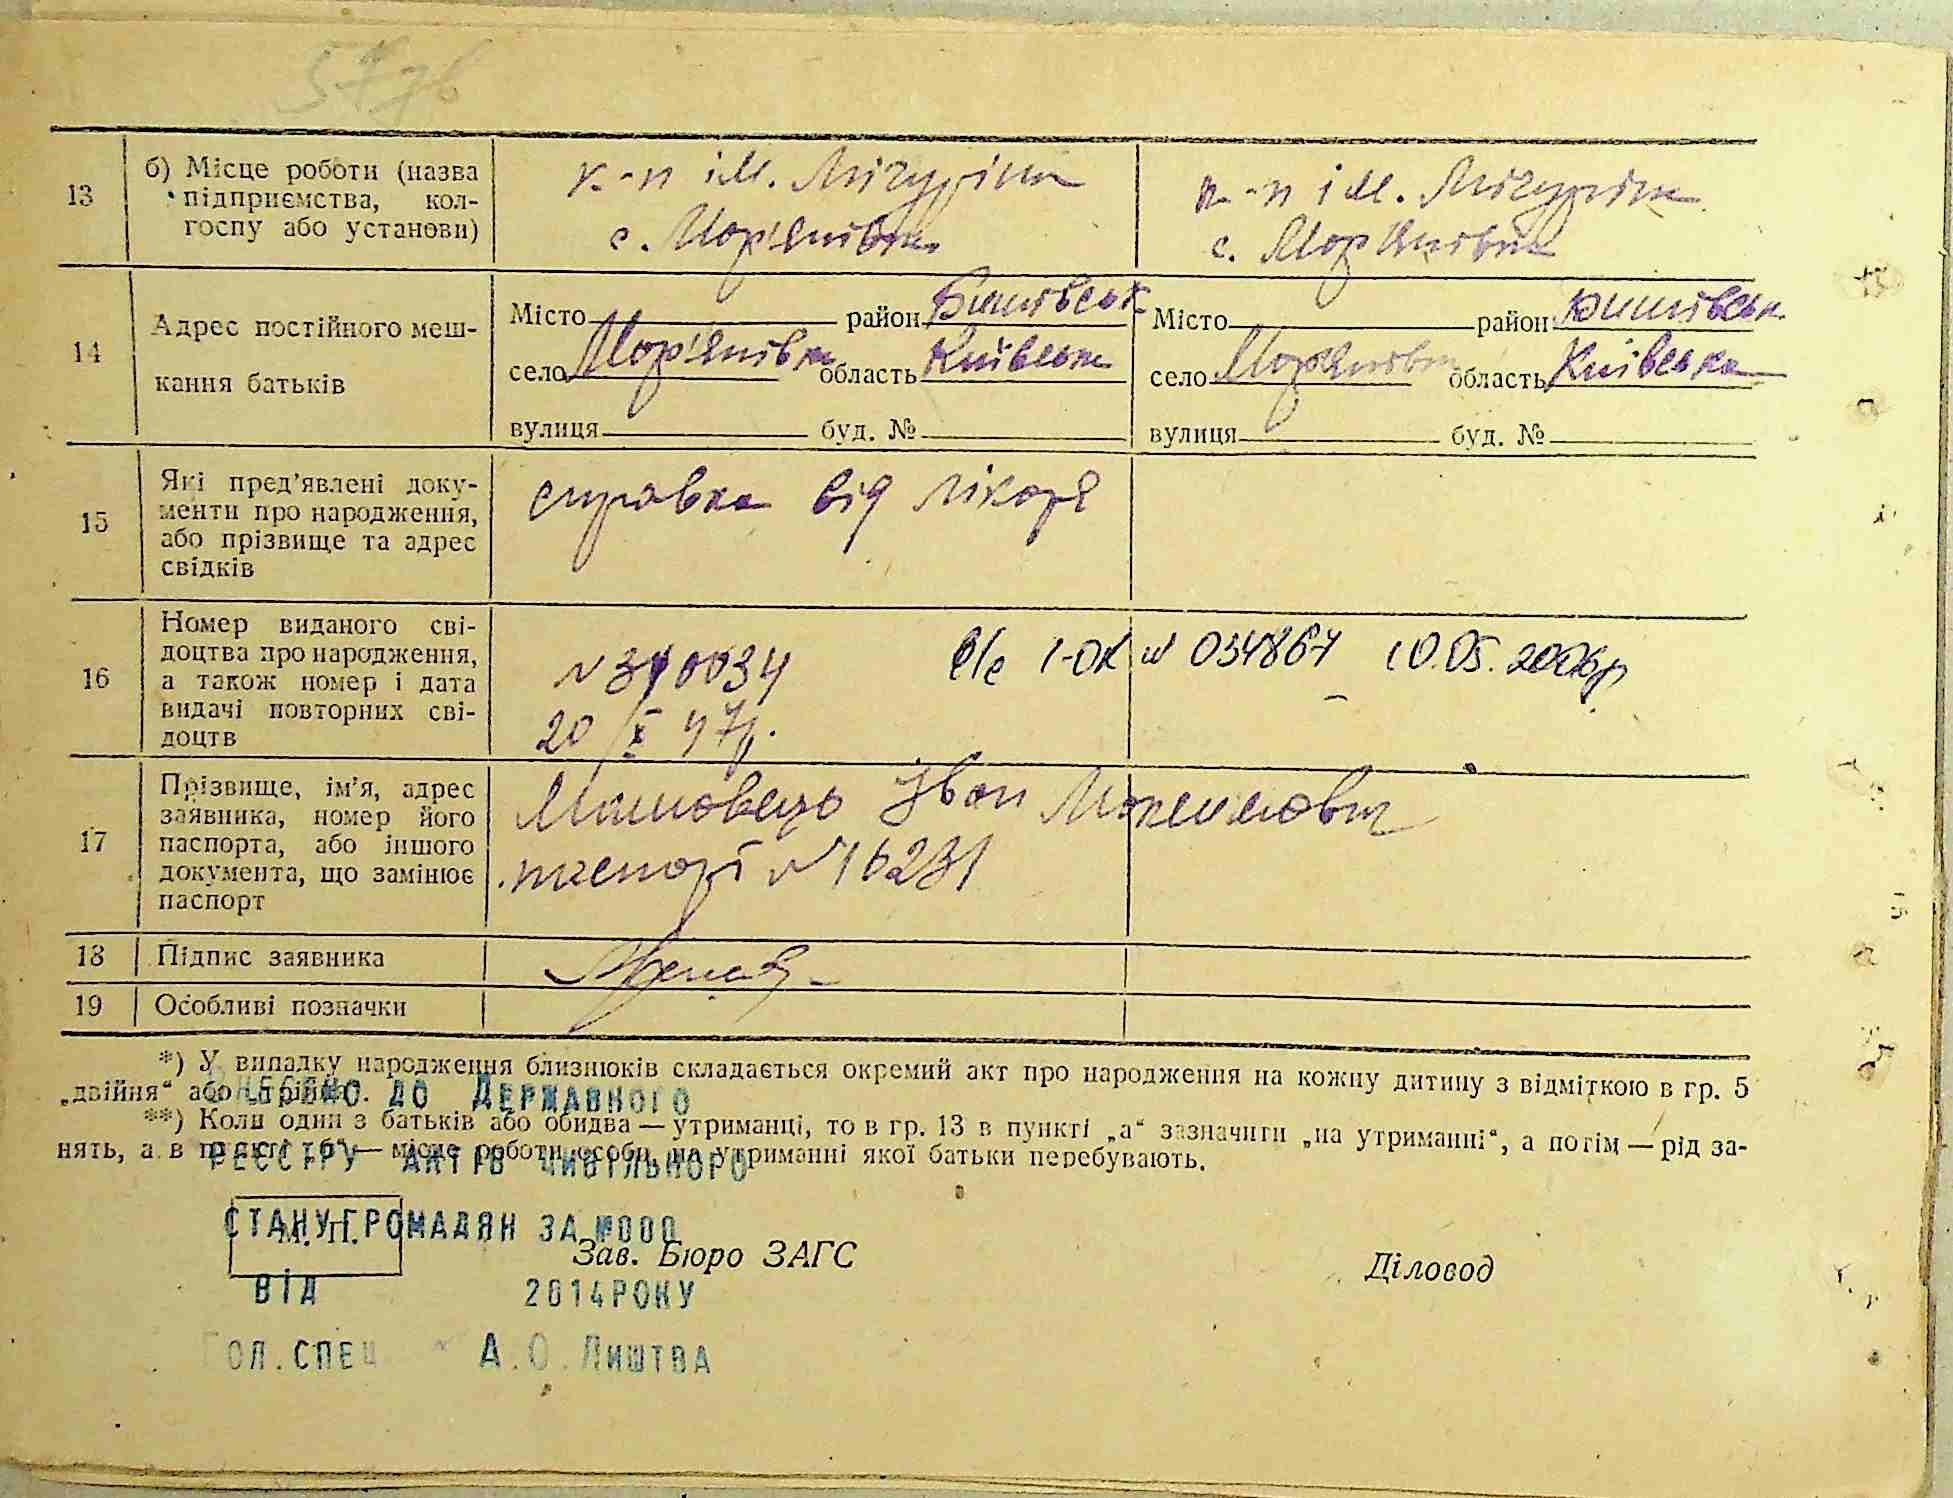 57зв
13
б) Місце роботи (назва
підприємства, кол-
госпу або установи)
к-п ім. Мічуріна
с. Мар'янівка
к-п ім. Мічуріна
с. Мар'янівка
14
Адрес постійного меш-
кання батьків
Місто район Бишівськ
село Мар'янівка область Київська
вулиця буд. №
Місто район Бишівськ
село Мар'янівка область Київська
вулиця буд. №
15
Які пред'явлені доку-
менти про народження,
або прізвище та адрес
свідків
справка від лікаря
16
Номер виданого сві-
доцтва про народження,
а також номер і дата
видачі повторних сві-
доцтв
N 340034
20/X 47р.
І-ОК № 034867 10.05.2006р
17
Прізвище, ім'я, адрес
заявника, номер його
паспорта, або іншого
документа, що замінює
паспорт
Іван
паспорт N 16231
18
Підпис заявника
19
Особливі позначки
*) У випадку народження близнюків складається окремий акт про народження на кожну дитину з відміткою в гр. 5
„двійня“ або „трійня“.
**) Коли один з батьків або обидва — утриманці, то в гр. 13 в пункті „а“ зазначити „на утриманні“, а потім — рід за-
нять, а в пункті „б“ — місце роботи особи, на утриманні якої батьки перебувають.
ВНЕСЕНО ДО ДЕРЖАВНОГО
РЕЄСТРУ АКТІВ ЦИВІЛЬНОГО
СТАНУ ГРОМАДЯН ЗА №000
ВІД 2014РОКУ
ГОЛ.СПЕЦ А.О.ЛИШТВА
М. П.
Зав. Бюро ЗАГС
Діловод